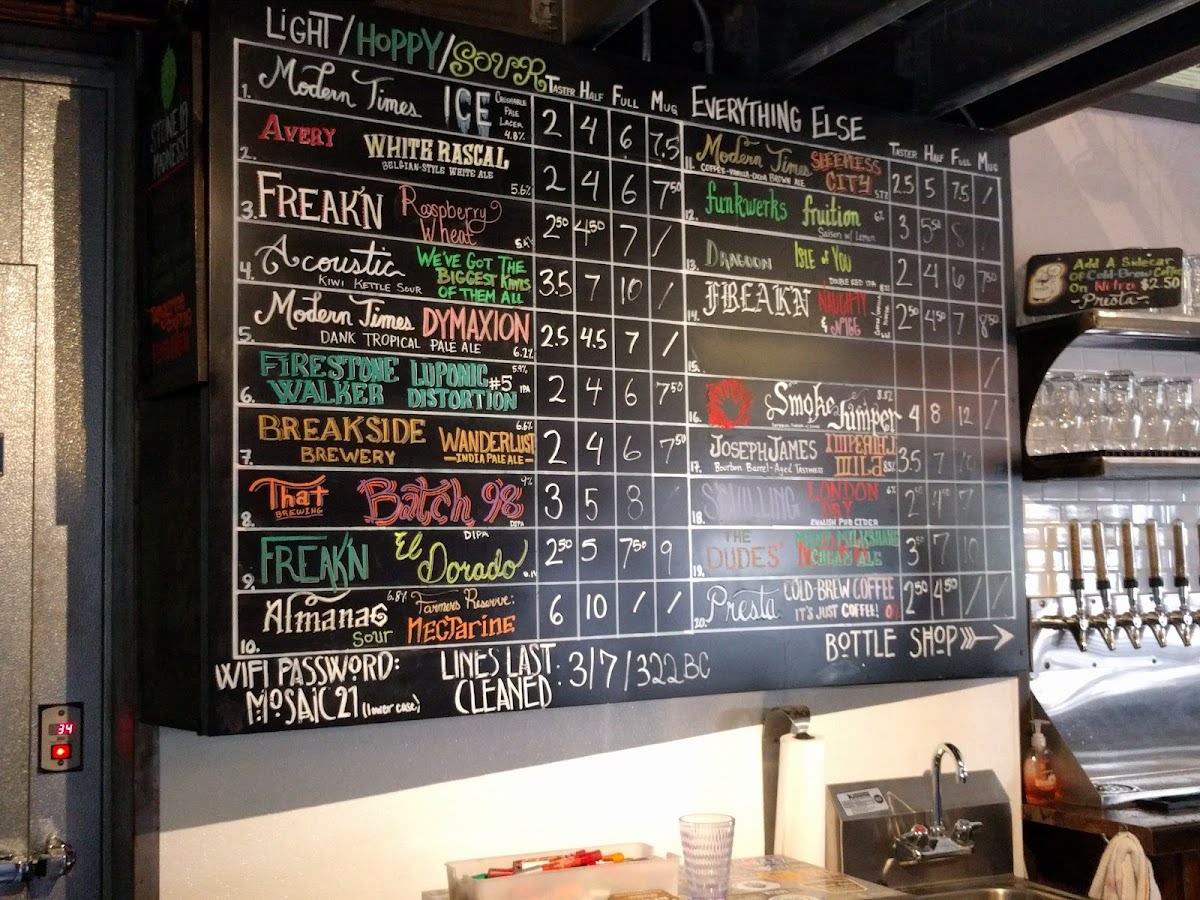 LIGHT/HOPPY/SOUR TASTER HALF FULL MUG
1. Modern Times ICE CRUSHABLE PALE LAGER 4.8% 2 4 6 7.5
2. AVERY WHITE RASCAL BELGIAN-STYLE WHITE ALE 5.6% 2 4 6 7⁵⁰
3. FREAK'N Raspberry Wheat 2⁵⁰ 4⁵⁰ 7 /
4. Acoustic KIWI KETTLE SOUR WE'VE GOT THE BIGGEST KIWIS OF THEM ALL 3.5 7 10 /
5. Modern Times DYMAXION DANK TROPICAL PALE ALE 6.2% 2.5 4.5 7 /
6. FIRESTONE WALKER LUPONIC DISTORTION #5 IPA 5.9% 2 4 6 7⁵⁰
7. BREAKSIDE BREWERY WANDERLUST INDIA PALE ALE 6.6% 2 4 6 7⁵⁰
8. That BREWING Batch 98 DIPA 9% 3 5 8 /
9. FREAK'N El Dorado DIPA 2⁵⁰ 5 7⁵⁰ 9
10. Almanac SOUR 6.8% Farmers Reserve: NECTARINE 6 10 / /
EVERYTHING ELSE TASTER HALF FULL MUG
11. Modern Times COFFEE-VANILLA-COCOA BROWN ALE SLEEPLESS CITY 2.5 5 7.5 /
12. funkwerks fruition Saison w/ Lemon 6% 3 5⁵⁰ 8 /
13. DRAGOON ISLE of YOU DOUBLE RED IPA 2 4 6 7⁵⁰
14. FREAK'N NAUGHTY & NICE 2⁵⁰ 4⁵⁰ 7 8⁵⁰
15. /
16. Smoke Jumper 4 8 12 /
17. JOSEPHJAMES Bourbon Barrel-Aged Tastiness IMPERIAL MILD 3.5 7
18. LONDON DRY ENGLISH PUB CIDER 6% 2⁵⁰ 4⁵⁰ 7
19. THE DUDES' 3⁵ 7 10
20. Presta COLD-BREW COFFEE IT'S JUST COFFEE! 2⁵⁰ 4⁵⁰ / /
WIFI PASSWORD: MOSAIC21 (lower case)
LINES LAST CLEANED: 3/7/322BC
BOTTLE SHOP
Add A Sidecar
Of Cold-Brew Coffee
On Nitro $2.50
-Presta-
34